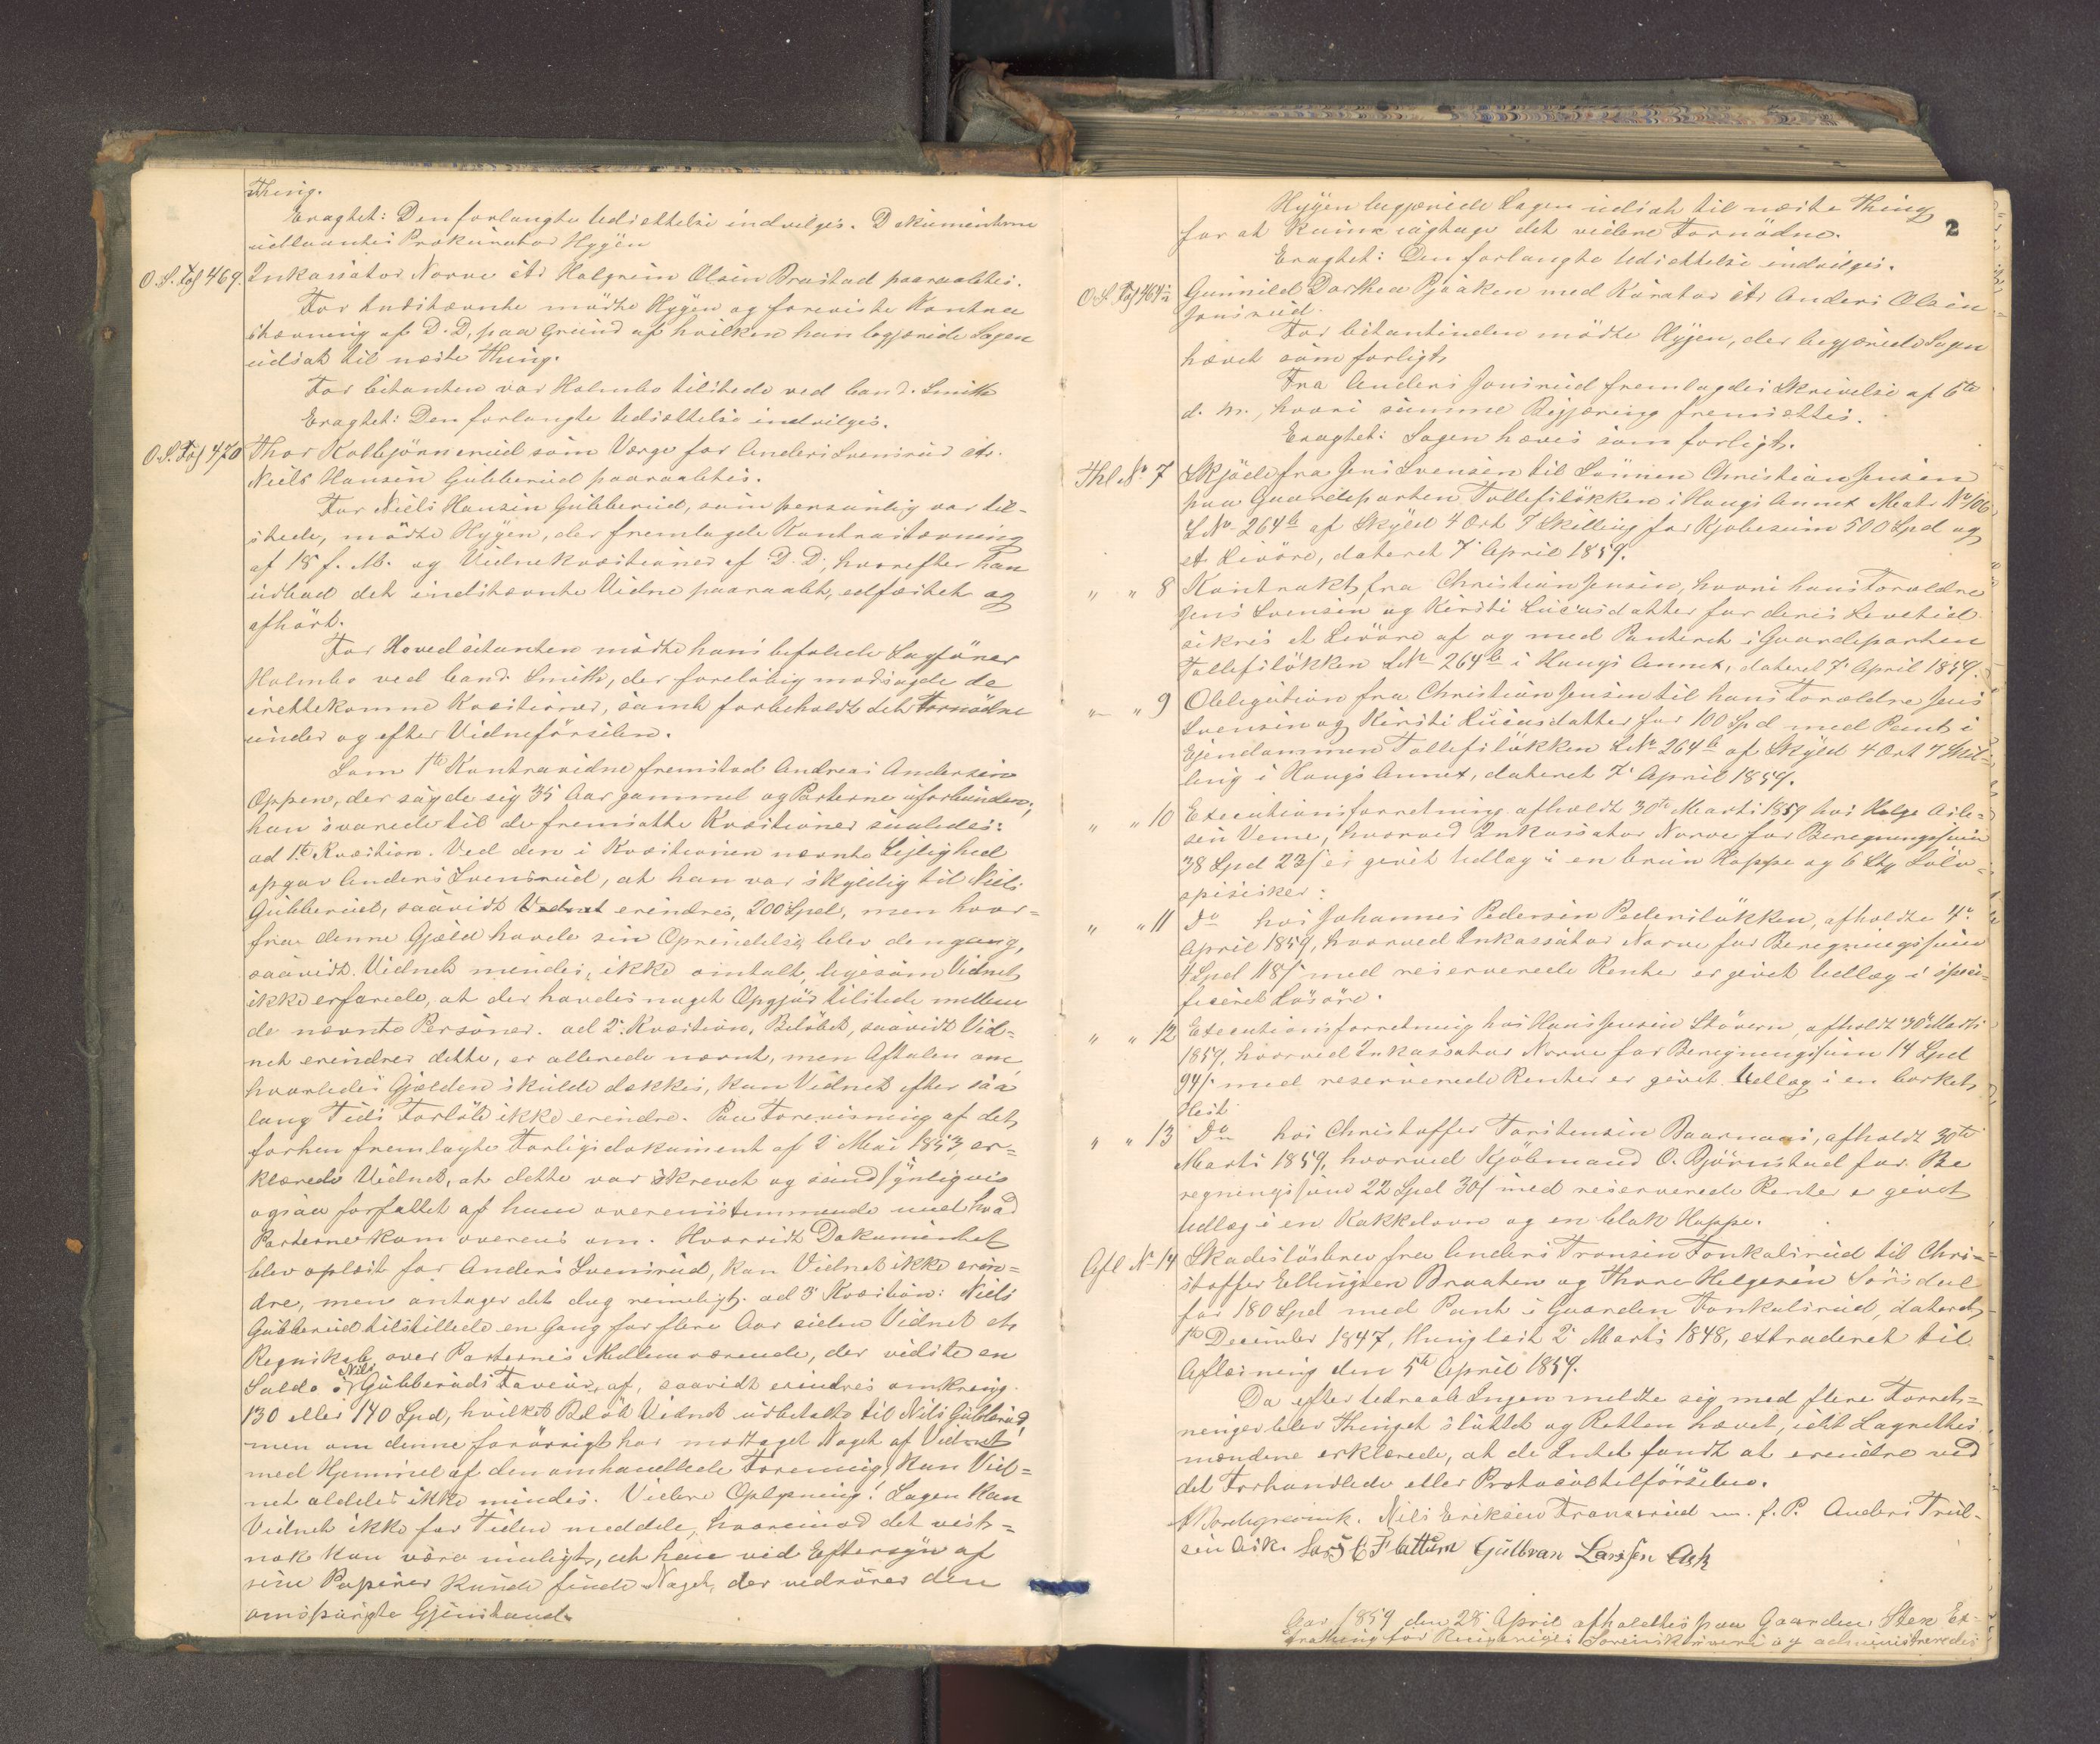 Thing.
Eragtet: Den forlangte Udsættelse indvilges. Dokumenterne
udlaantes Prokurator Hyyen
O. S. Fog 469. Inkassator Norve ctr Halgrim Olsen Brastad paaraabtes.
For Indstævnte mødte Hyyen og foreviste Kontra
stævning af D. D, paa Grund af hvilken han begjærede Sagen
udsat til næste Thing.
For Citanten var Holmbo tilstede ved Cand. Smith
Eragtet: Den forlangte Udsættelse indvilges.
O.S. Fog 470 Thor Kolbjørnsrud som Værge for Anders Svensrud ctr.
Niels Hansen Gubberud paaraabtes.
For Niels Hansen Gubberud, som personlig var til-
stede, mødte Hyyen, der fremlagde Kontrastævning
af 18 f. M. og Vidnekvæstioner af D. D, hvorefter han
udbad det indstævnte Vidne paaraabt, edfæstet og
afhørt.
For Hovedcitanten mødte hans befalede Sagfører
Holmbo ved Cand. Smith, der foreløbig modsagde de
irettekomne Kvæstioner, samt forbeholdt det Fornødne
under og efter Vidneførselen.
Som 1ste Kontravidne fremstod Andreas Andersen
Oppen, der sagde sig 35 Aar gammel og Parterne uforbunden;
han svarede til de fremsatte Kvæstioner saaledes:
ad 1ste Kvæstion. Ved den i Kvæstionen nævnte Leilighed
opgav Anders Svensrud, at han var skyldig til Niels
Gubberud, saavidt Vidnet erindres, 200 Spd, men hvor=
fra denne Gjæld havde sin Oprindelse, blev dengang,
saavidt Vidnet mindes, ikke omtalt, ligesom Vidnet
ikke erfarede, at der havdes noget Opgjør tilstede mellem
de nævnte Personer. ad 2. Kvæstion, Beløbet, saavidt Vid=
net erindrer dette, er allerede nævnt, men Aftalen om
hvorledes Gjælden skulde dækkes, kan Vidnet efter saa
lang Tids Forløb ikke erindre. Paa Forevisning af det
forhen fremlagte Forligsdokument af 2 Mai 1853, er=
klærede Vidnet, at dette var skrevet og sandsynligvis
ogsaa forfattet af ham overensstemmende med hvad
Parterne kom overens om. Hvorvidt Dokumentet
blev oplæst for Anders Svensrud, kan Vidnet ikke erin=
dre, men antager det dog rimeligt. ad 3 Kvæstion: Niels
Gubberud tilstillede en Gang for flere Aar siden Vidnet et
Regnskab over Parternes Mellemværende, der vidste en
Saldo i Nils Gubberuds Faveur, af, saavidt erindres omkring
130 eller 140 Spd, hvilket Beløb Vidnet udbetalte til Nils Gubberud,
men om denne forøvrigt har modtaget Noget af Vidnet
med Hjemmel af den omhandlede Forening, kan Vid=
net aldeles ikke mindes. Videre Oplysning i Sagen kan
Vidnet ikke for Tiden meddele, hvorimod det vist=
nok kan være muligt, at han ved Eftersyn af
sine Papirer kunde finde Noget, der vedrører den
omspurgte Gjenstand.
2
Hyyen begjærede Sagen udsat til næste Thing
for at kunne iagttage det videre Fornødne.
Eragtet: Den forlangte Udsættelse indvilges.
O S Fog 464 Gunnild Dorthea Pjaaken med Kurator ctr Anders Olsen
Jonsrud.
For Citantinden mødte Hyyen, der begjærede Sagen
hævet som forligt.
Fra Anders Jonsrud fremlagdes Skrivelse af 6te
d. M., hvori samme Begjæring fremsættes.
Eragtet: Sagen hæves som forligt.
Thl. No 7 Skjøde fra Jens Svensen til Sønnen Christian Jensen
paa Gaardeparten Tollefsløkken i Haugs Annex Matr No 106
L No 264b af Skyld 4 Ort 7 Skilling for Kjøbesum 500 Spd og
et Livøre, dateret 7 April 1859.
" " 8 Kontrakt fra Christian Jensen, hvori hans Foreldre
Jens Svensen og Kirsti Lucasdatter for deres Levetid
sikres et Livøre af og med Panteret i Gaardeparten
Tollefsløkken L No 264b i Haugs Annex, dateret 7 April 1859.
" " 9 Obligation fra Christian Jensen til hans Forældre Jens
Svensen og Kirsti Lucasdatter for 100 Spd med Pant i
Ejendommen Tollefsløkken L No 264b af Skyld 4 Ort 7 Skil=
ling i Haugs Annex, dateret 7 April 1859.
" " 10 Executionsforretning afholdt 30te Marts 1859 hos Helge Asle=
sen Veme, hvorved Inkassator Norve for Beregningssum
38 Spd 23 s er givet Udlæg i en brun Hoppe og 6 Stk Sølv=
spiseskeer.
" " 11 Do hos Johannes Pedersen Pedersløkken, afholdte 4
April 1859, hvorved Inkassator Norve for Beregningssum
4 Spd 118 s med reserverede Renter er givet Udlæg i speci=
ficeret Løsøre.
" " 12 Executionsforretning hos Hans Jensen Støvern, afholdt 30 Marts
1859, hvorved Inkassator Norve for Beregningssum 14 Spd
94 s med reserverede Renter er givet Udlæg i en borket
Hest
" " 13 Do hos Christoffer Torstensen Baarnaas, afholdt 30te
Marts 1859, hvorved Kjøbmand O. Bjørnstad for Be
regningssum 22 Spd 30 s med reserverede Renter er givet
Udlæg i en Kakkelovn og en blak Hoppe.
Afl No 14 Skadesløsbrev fra Anders Tronsen Fonkalsrud til Chri=
stoffer Ellingsen Braaten og Thore Helgesen Sørsdal
for 180 Spd med Pant i Gaarden Fonkalsrud, dateret
1ste December 1847, thinglæst 2 Marts 1848, extraderet til
Aflæsning den 5te April 1859.
Da efter Udraab Ingen meldte sig med flere Forret=
ninger blev Thinget sluttet og Retten hævet, idet Lagrettes
mændene erklærede, at de Intet fandt at erindre ved
det Forhandlede eller Protocoltilførselen.
Nils Eriksen Transrud m. f. P. Anders Trul-
sen Ask. Lars C Flattum Gulbran Larssen Ask
Aar 1859 den 28 April afholdtes paa Gaarden Steen Ex=
trathing for Ringeriges Sorenskriveri og administreredes